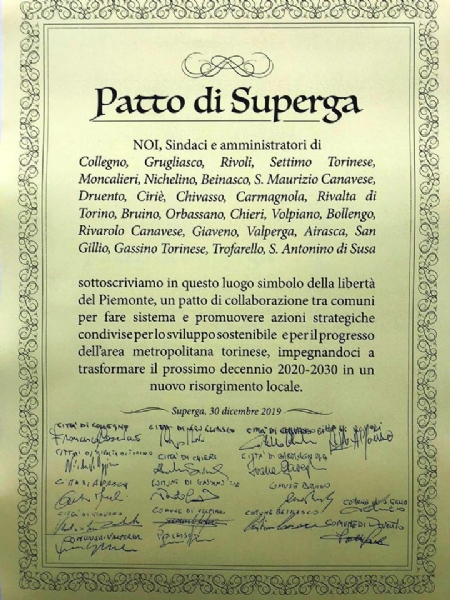 Patto di Superga
NOI, Sindaci e amministratori di
Collegno, Grugliasco, Rivoli, Settimo Torinese,
Moncalieri, Nichelino, Beinasco, S. Maurizio Canavese,
Druento, Ciriè, Chivasso, Carmagnola, Rivalta di
Torino, Bruino, Orbassano, Chieri, Volpiano, Bollengo,
Rivarolo Canavese, Giaveno, Valperga, Airasca, San
Gillio, Gassino Torinese, Trofarello, S. Antonino di Susa
sottoscriviamo in questo luogo simbolo della libertà
del Piemonte, un patto di collaborazione tra comuni
per fare sistema e promuovere azioni strategiche
condivise per lo sviluppo sostenibile e per il progresso
dell'area metropolitana torinese, impegnandoci a
trasformare il prossimo decennio 2020-2030 in un
nuovo risorgimento locale.
Superga, 30 dicembre 2019
CITTÀ DI COLLEGNO CITTÀ DI GRUGLIASCO
CITTÀ DI CHIERI CITTÀ DI CARMAGNOLA
COMUNE BRUINO
COMUNE BEINASCO
COMUNE VALPERGA